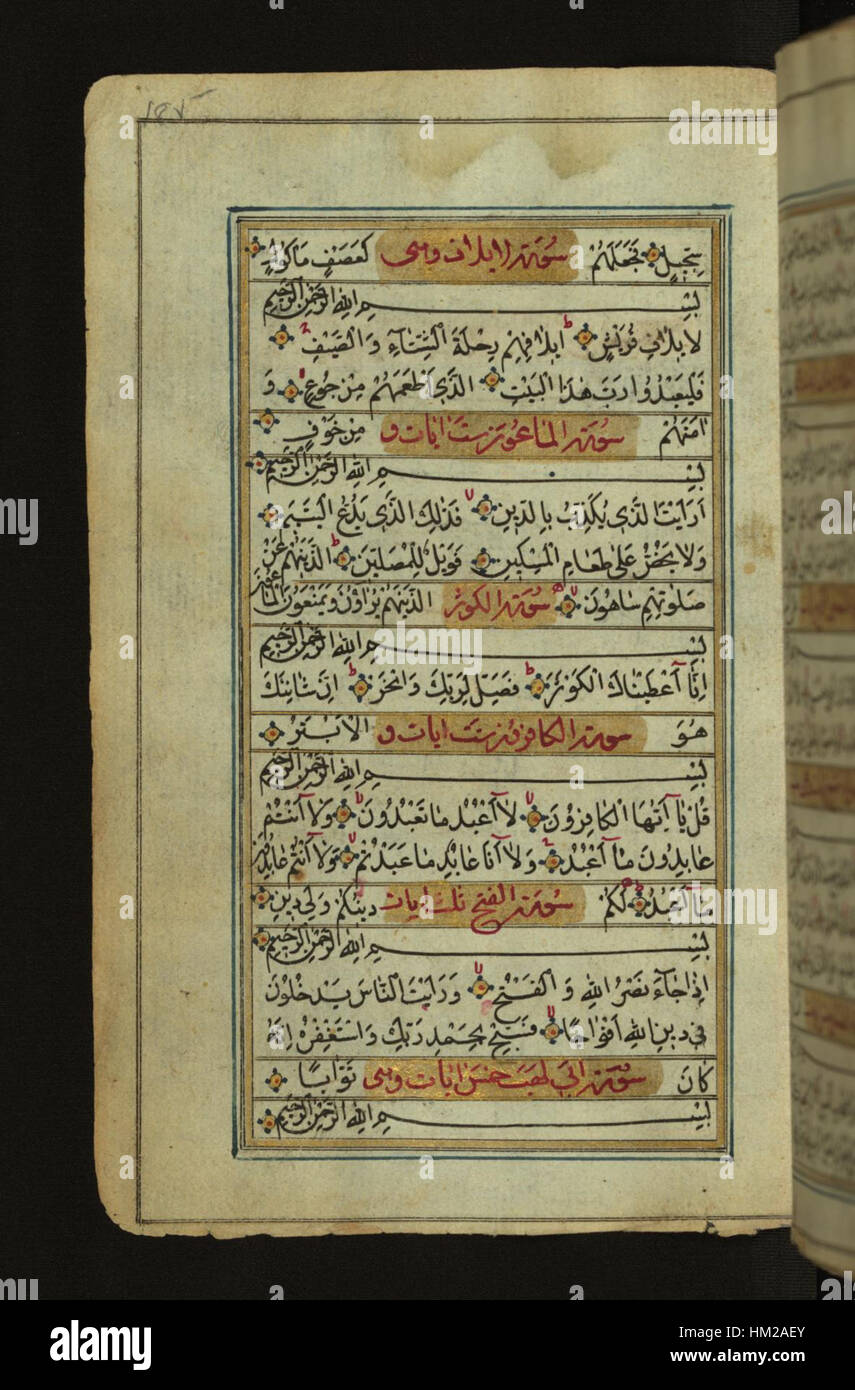 سجيل فجعلهم سورة لايلاف وهي كعصف ماكول
بسم الله الرحمن الرحيم
لايلاف قريش ايلافهم رحلة الشتاء والصيف
فليعبدوا رب هذا البيت الذي اطعمهم من جوع و
امنهم سورة الماعون ست ايات و من خوف
بسم الله الرحمن الرحيم
ارايت الذي يكذب بالدين فذلك الذي يدع اليتيم
ولا يحض على طعام المسكين فويل للمصلين الذينهم عن
صلوتهم ساهون سورة الكوثر الذينهم يراون ويمنعون الماعون
بسم الله الرحمن الرحيم
انا اعطيناك الكوثر فصل لربك وانحر ان شانئك
هو سورة الكافرون ست ايات و الابتر
بسم الله الرحمن الرحيم
قل يا ايها الكافرون لا اعبد ما تعبدون ولا انتم
عابدون ما اعبد ولا انا عابد ما عبدتم ولا انتم عابدون
ما اعبد لكم سورة الفتح ثلث ايات دينكم ولي دين
بسم الله الرحمن الرحيم
اذا جاء نصر الله والفتح ورايت الناس يدخلون
في دين الله افواجا فسبح بحمد ربك واستغفره انه
كان سورة ابي لهب خمس ايات وهي توابا
بسم الله الرحمن الرحيم
alamy
Image ID: HM2AEY
www.alamy.com